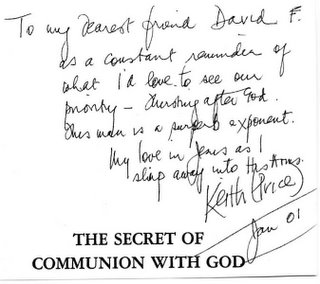 To my dearest friend David F.
as a constant reminder of
what I'd love to see our
priority – thirsting after God.
This man is a superb exponent.
My love in Jesus as I
slip away into His Arms.
Keith (Price)
Jan 01
THE SECRET OF
COMMUNION WITH GOD